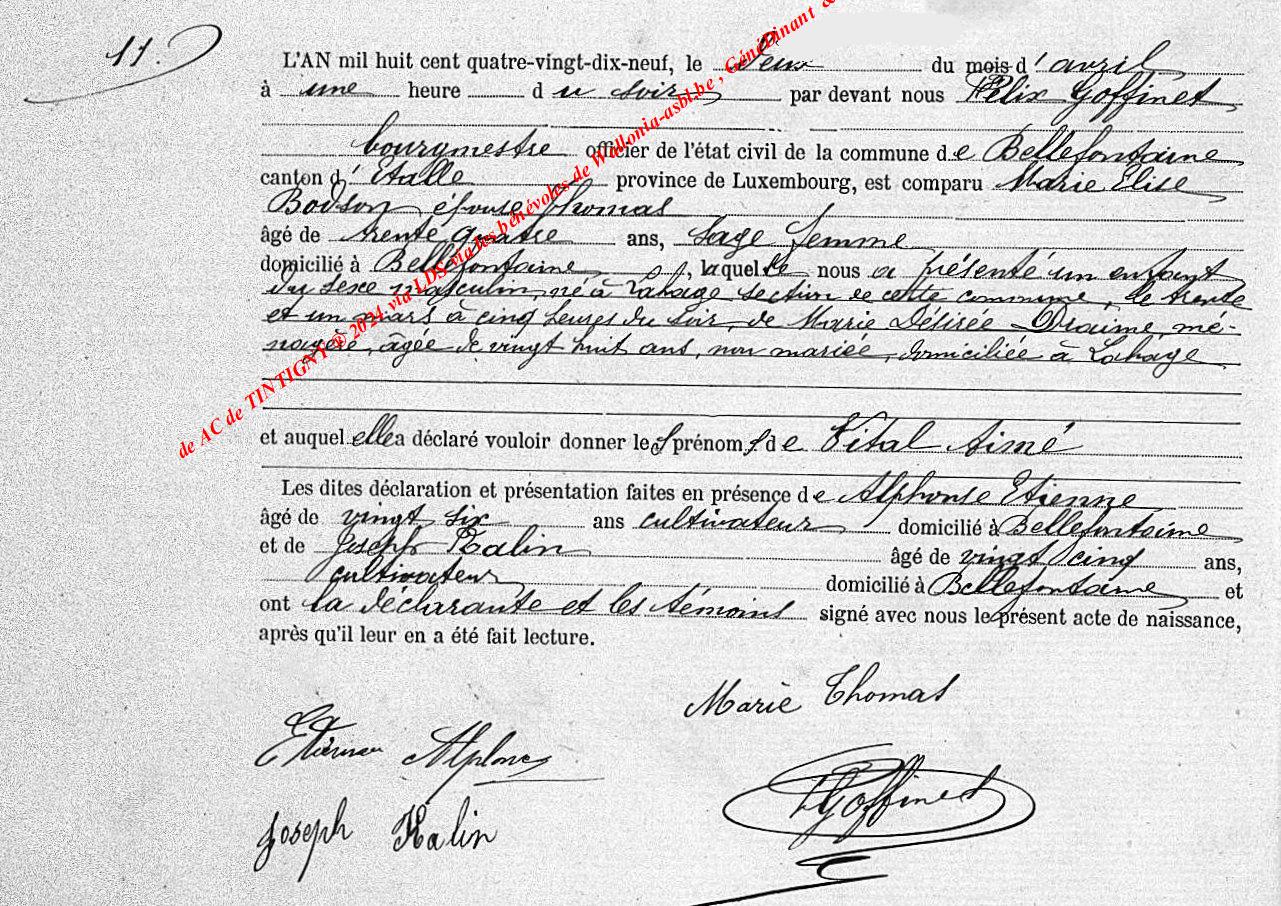 11.
L'AN mil huit cent quatre-vingt-dix-neuf, le Deux du mois d'avril
à une heure du soir par devant nous Félix Goffinet
bourgmestre officier de l'état civil de la commune de Bellefontaine
canton d'Etalle province de Luxembourg, est comparu Marie Elise
Bodson épouse Thomas
âgé de trente quatre ans, Sage femme
domicilié à Bellefontaine, laquelle nous a présenté un enfant
du sexe masculin, né à Lahage section de cette commune, le trente
et un mars à cinq heures du soir, de Marie Désirée Draime, mé-
nagère, âgée de vingt huit ans, non mariée, domiciliée à Lahage.
et auquel elle a déclaré vouloir donner les prénoms de Vital Aimé
Les dites déclaration et présentation faites en présence de Alphonse Etienne
âgé de vingt six ans cultivateur domicilié à Bellefontaine
et de Joseph Halin âgé de vingt cinq ans,
cultivateur domicilié à Bellefontaine et
ont la déclarante et les témoins signé avec nous le présent acte de naissance,
après qu'il leur en a été fait lecture.
Marie Thomas
Etienne Alphonse
Goffinet
Joseph Halin
de AC de TINTIGNY ® 2024 via LDS via les bénévoles de Wallonia-asbl.be , Généminant &